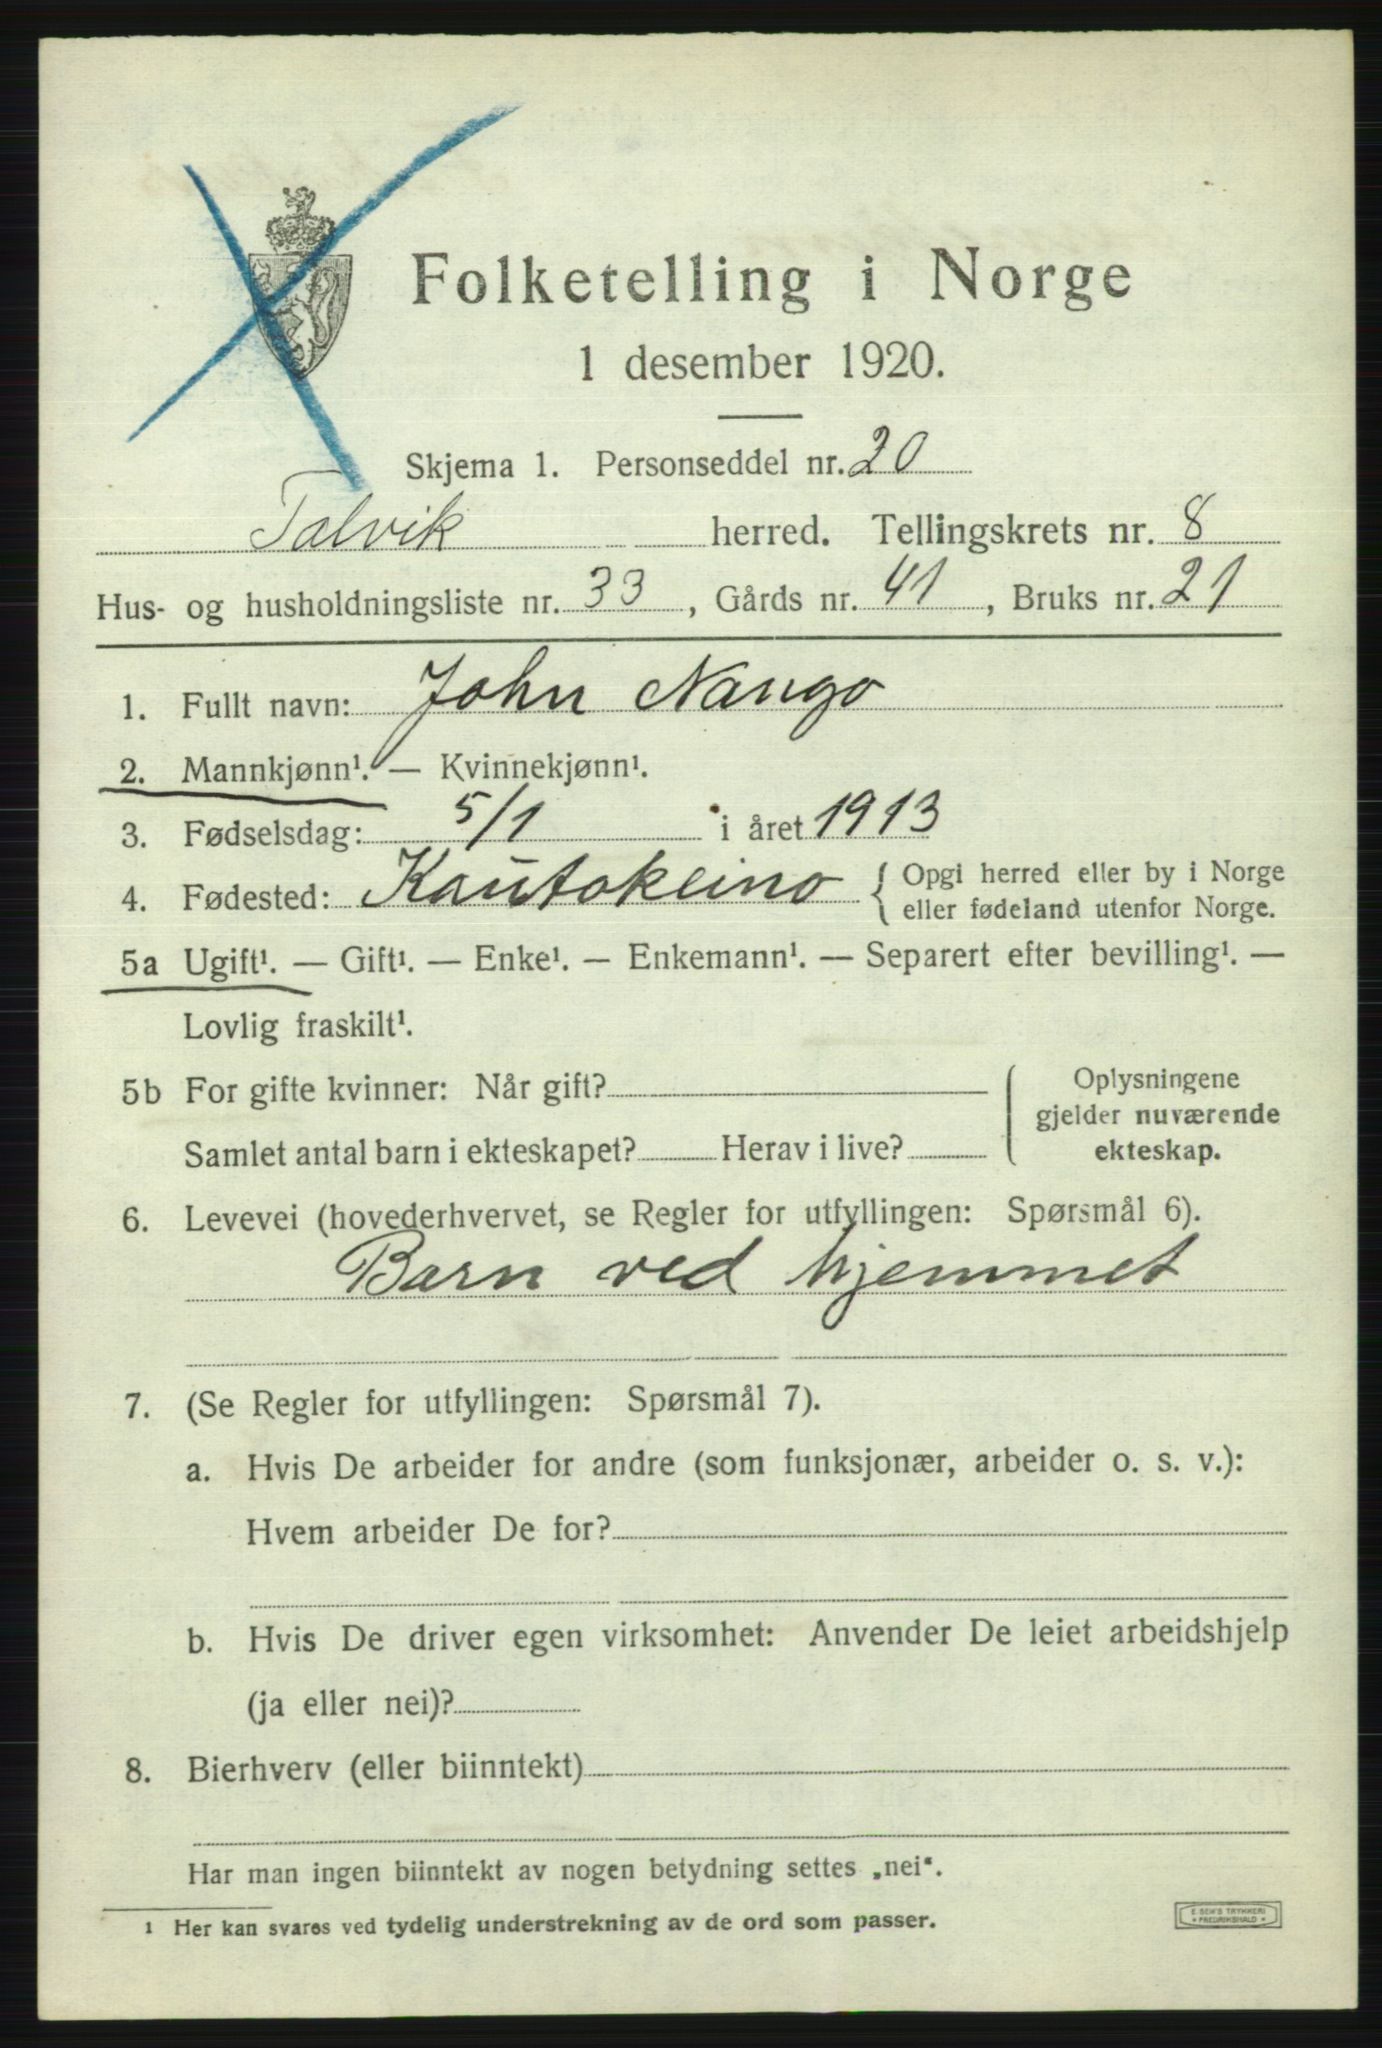 Folketelling i Norge
1 desember 1920.
Skjema 1. Personseddel nr. 20
Talvik herred. Tellingskrets nr. 8
Hus- og husholdningsliste nr. 33, Gårds nr. 41, Bruks nr. 21
1. Fullt navn: John Nango
2. Mannkjønn¹. — Kvinnekjønn¹.
3. Fødselsdag: 5/1 i året 1913
4. Fødested: Kautokeino { Opgi herred eller by i Norge
eller fødeland utenfor Norge.
5a Ugift¹. — Gift¹. — Enke¹. — Enkemann¹. — Separert efter bevilling¹. —
Lovlig fraskilt¹.
5b For gifte kvinner: Når gift?
Samlet antal barn i ekteskapet? Herav i live?
Oplysningene
gjelder nuværende
ekteskap.
6. Levevei (hovederhvervet, se Regler for utfyllingen: Spørsmål 6).
Barn ved hjemmet
7. (Se Regler for utfyllingen: Spørsmål 7).
a. Hvis De arbeider for andre (som funksjonær, arbeider o. s. v.):
Hvem arbeider De for?
b. Hvis De driver egen virksomhet: Anvender De leiet arbeidshjelp
(ja eller nei)?
8. Bierhverv (eller biinntekt)
Har man ingen biinntekt av nogen betydning settes „nei“.
¹ Her kan svares ved tydelig understrekning av de ord som passer.
E. SEM'S TRYKKERI
* FREDRIKSHALD *